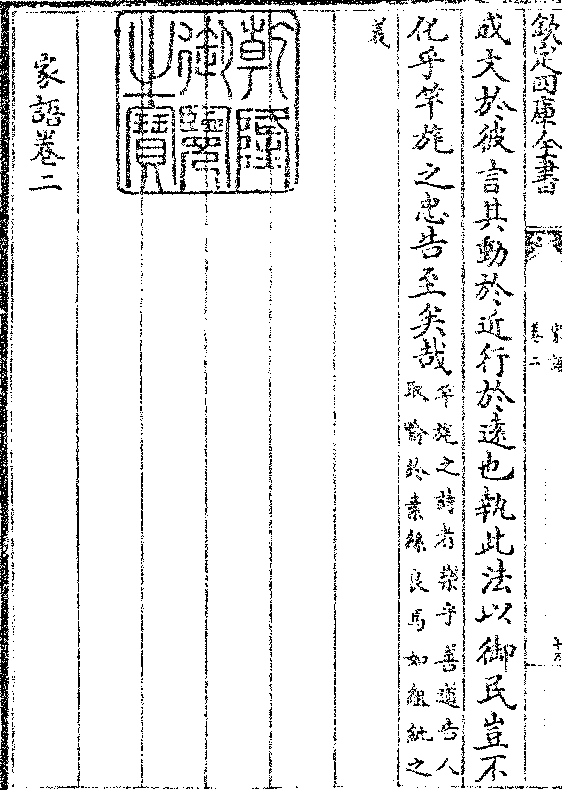 欽定四庫全書
家語
卷二
十六
成文於彼言其動於近行於遠也執此法以御民豈不
化乎竿旄之忠告至矣哉
竿旄之詩者樂乎善道告人
取喻於素絲良馬如組紕之
義
乾隆
御覽
之寶
家語卷二